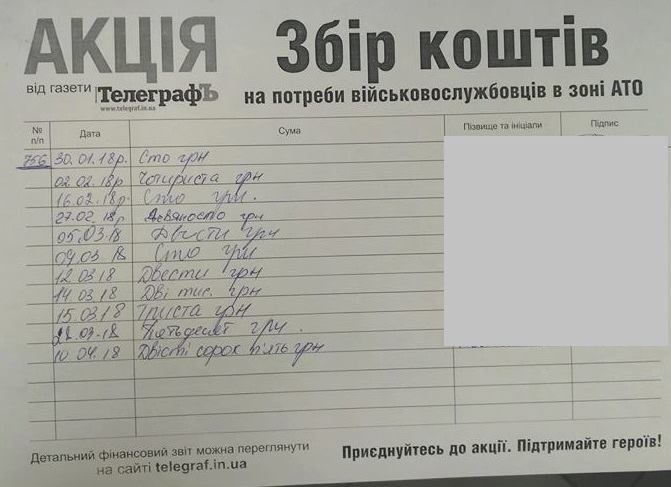 АКЦІЯ
від газети ТелеграфЪ
www.telegraf.in.ua
Збір коштів
на потреби військовослужбовців в зоні АТО
№ п/п Дата Сума Пізвище та ініціали Підпис
756 30.01.18р. Сто грн
02.02.18р Чотириста грн
16.02.18р. Сто грн.
27.02.18р Девяносто грн
05.03.18 Двісти грн
09.03.18 Сто грн
12.03.18 Двести грн
14.03.18 Дві тис. грн
15.03.18 Триста грн
22.03.18 Пятьдесят грн.
10.04.18 Двісті сорок п'ять грн
Детальний фінансовий звіт можна переглянути
на сайті telegraf.in.ua
Приєднуйтесь до акції. Підтримайте героїв!